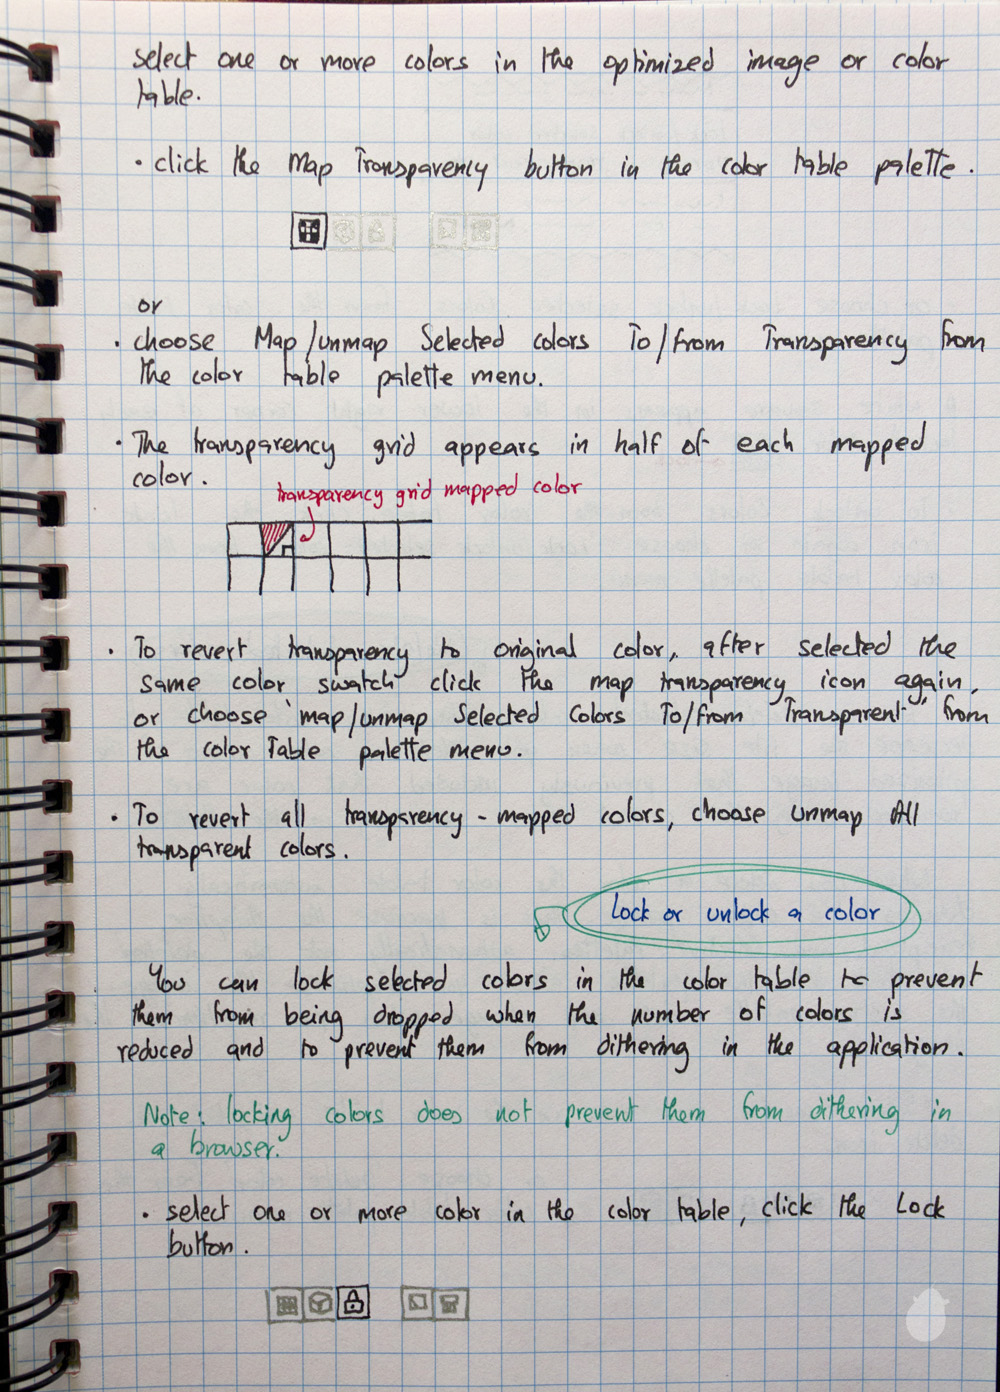 select one or more colors in the optimized image or color
table.
· click the Map Transparency button in the color table palette.
or
· choose Map/unmap Selected colors To/from Transparency from
the color table palette menu.
· The transparency grid appears in half of each mapped
color.
transparency grid mapped color
· To revert transparency to original color, after selected the
same color swatch click the map transparency icon again,
or choose "map/unmap Selected Colors To/from Transparent" from
the color Table palette menu.
· To revert all transparency-mapped colors, choose unmap All
transparent colors.
Lock or unlock a color
You can lock selected colors in the color table to prevent
them from being dropped when the number of colors is
reduced and to prevent them from dithering in the application.
Note: locking colors does not prevent them from dithering in
a browser.
· select one or more color in the color table, click the Lock
button.